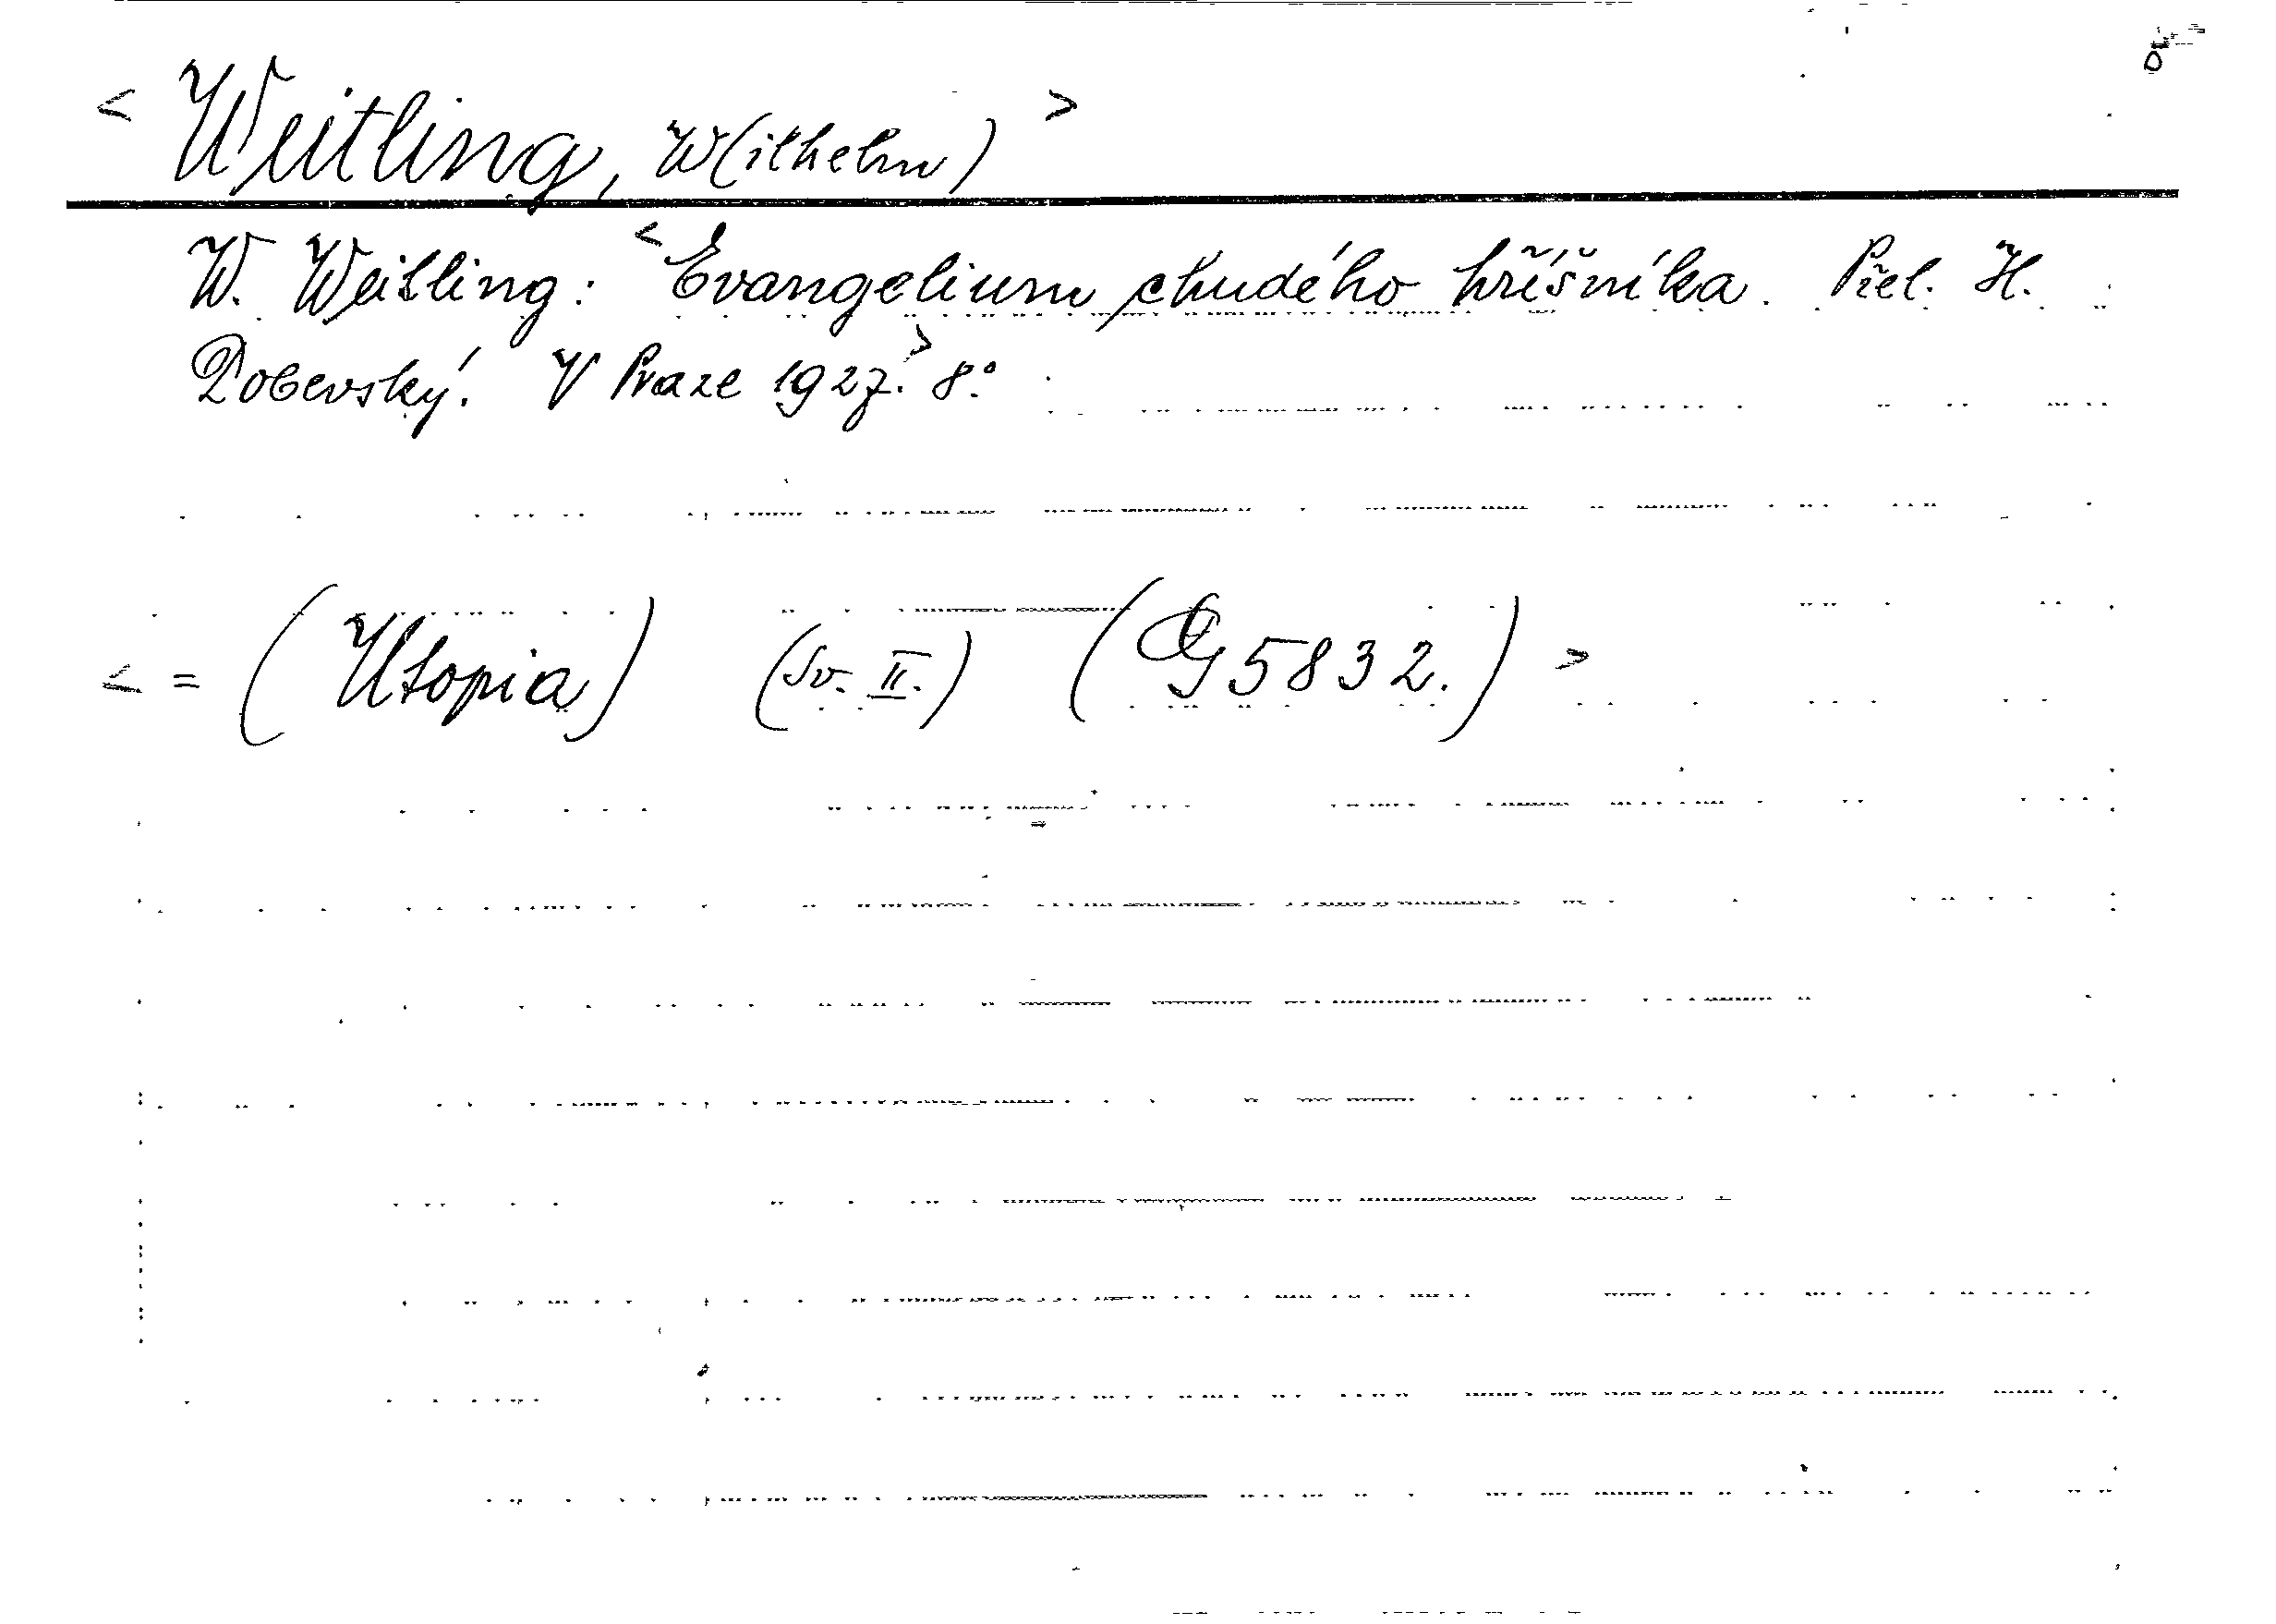 < Weitling, W(ilhelm) >
W. Weitling: <Evangelium chudého hříšníka. Přel. H.
Dobevský. V Praze 1927.> 8.°
< = (Utopia) (Sv. II.) (G 5832.) >